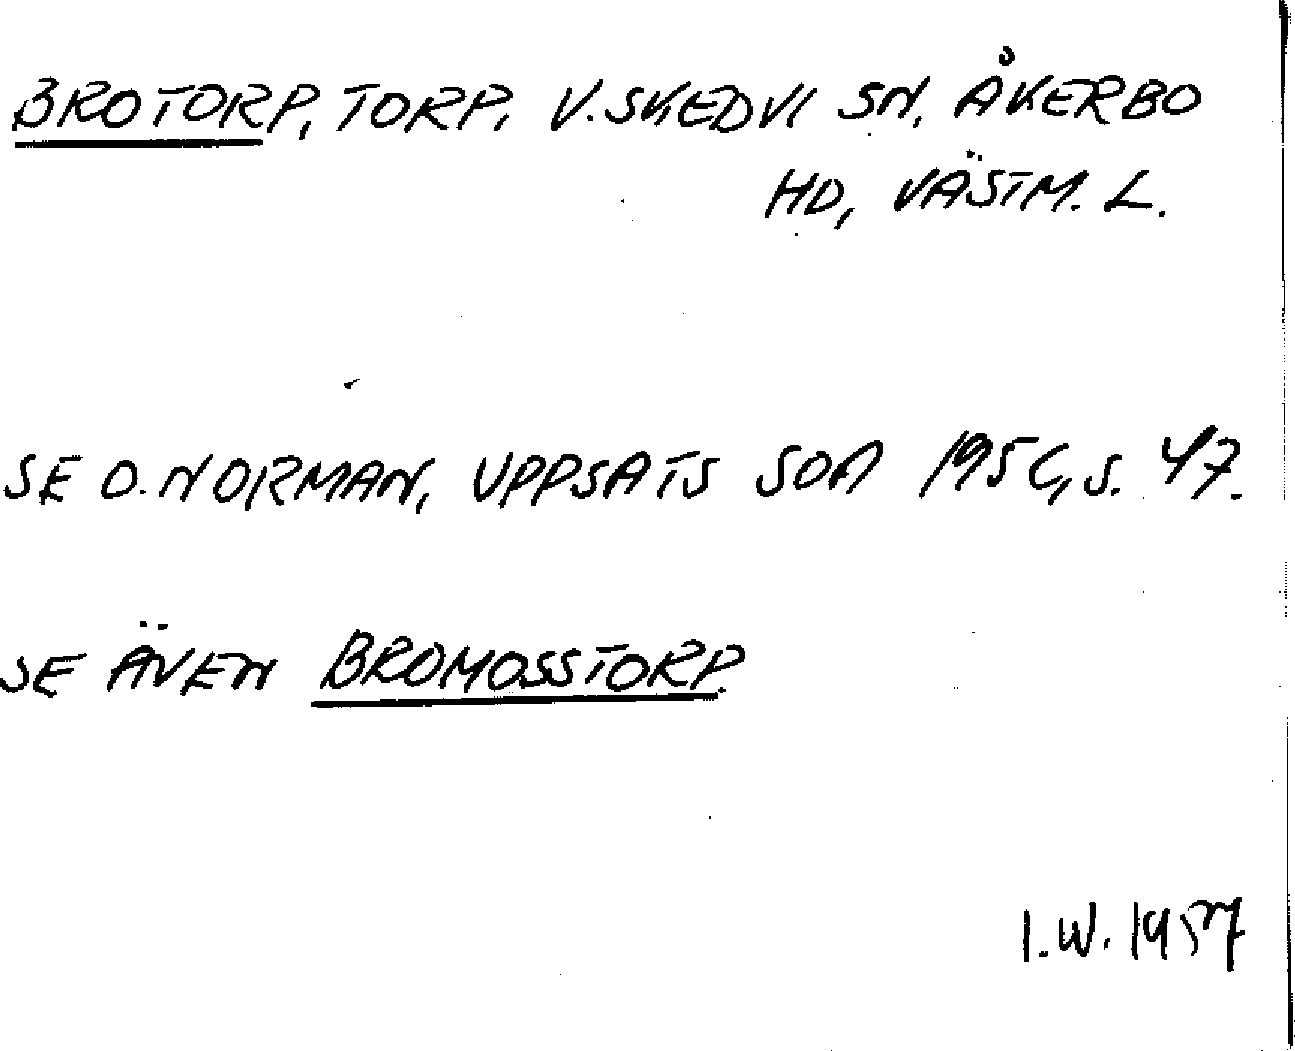 BROTORP, TORP. V. SKEDVI SN, ÅKERBO
HD, VÄSTM. L.
SE O. NORMAN, UPPSATS SOM 1956, S. 47.
SE ÄVEN BROMOSSTORP.
I.W. 1957